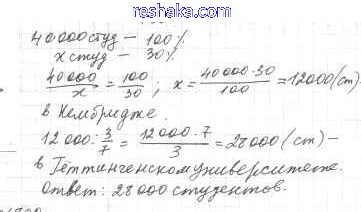 reshaka.com
40000 студ – 100%
х студ – 30%
40000/х = 100/30; х = 40000·30/100 = 12000 (ст)
в Кембридже.
12000 : 3/7 = 12000·7/3 = 28000 (ст) –
в Гёттингенском университете.
Ответ: 28000 студентов.